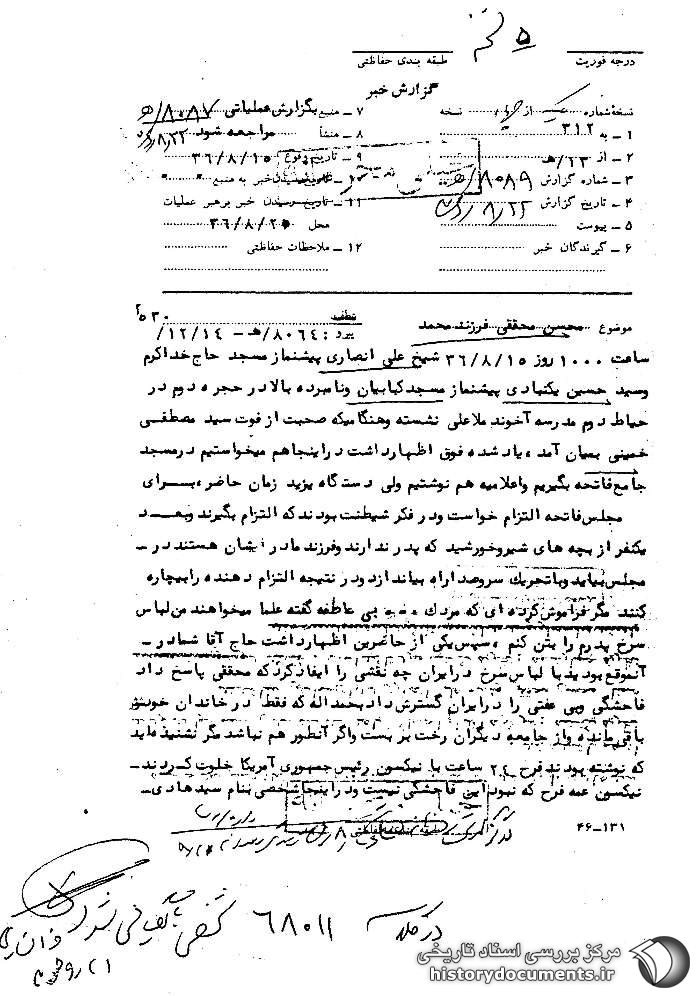 ۵
درجه فوریت
طبقه بندی حفاظتی
گزارش خبر
نسخهٔ شماره از نسخه
۱ ـ به ۳۱۲
۲ ـ از ۲۳/هـ
۳ ـ شماره گزارش ۸۰۸۹/هـ
۴ ـ تاریخ گزارش ۸/۲۲
۵ ـ پیوست
۶ ـ گیرندگان خبر
۷ ـ منبع بگزارش عملیاتی ۸۰۸۷/هـ
۸ ـ منشأ مراجعه شود ۸/۲۲
۹ ـ تاریخ وقوع ۳۶/۸/۱۵
۱۰ ـ خبر به منبع " "
۱۱ ـ تاریخ رسیدن خبر برهبر عملیات
محل ۳۶/۸/۲۰
۱۲ ـ ملاحظات حفاظتی
موضوع محسن محققی فرزند محمد
۵۳۰
۸۰۶۴/هـ ـ ۱۲/۱۴/
ساعت ۱۰۰۰ روز ۳۶/۸/۱۵ شیخ علی انصاری پیشنماز مسجد حاج خداکرم
وسید حسین یکتبادی پیشنماز مسجد کبابیان ونامبرده بالا در حجره دوم در
حیاط دوم مدرسه آخوند ملاعلی نشسته وهنگامیکه صحبت از فوت سید مصطفی
خمینی بمیان آمد ، یاد شده فوق اظهارداشت در اینجا هم میخواستیم در مسجد
جامع فاتحه بگیریم واعلامیه هم نوشتیم ولی دستگاه یزید زمان حاضر ، برای
مجلس فاتحه التزام خواست ودر فکر شیطنت بودند که التزام بگیرند وبعد
یکنفر از بچه های شیروخورشید که پدر ندارند وفرزند مادرایشان هستند در ـ
مجلس بیاید وباتحریک سروصدا راه بیاندازد ودر نتیجه التزام دهنده را بیچاره
کنند مگر فراموش کرده ای که مردک بی عاطفه گفته علما میخواهند من لباس
سرخ پدرم را بتن کنم ، سپس یکی از حاضرین اظهارداشت حاج آقا شما در ـ
آنموقع بودید با لباس سرخ در ایران چه نقشی را ایفا ذکرد که محققی پاسخ داد
فاحشگی وبی عفتی را در ایران گسترش داد بحمداله که فقط در خاندان خودش
باقیمانده واز جامعه دیگران رخت بر بست واگر آنطور هم نباشد مگر نشنیده اید
که نوشته بودند فرح ۲٤ ساعت با نیکسون رئیس جمهوری آمریکا خلوت کردند ـ
نیکسون عمه فرح که نبود این فاحشگی نیست ودر اینجا شخصی بنام سید هادی ـ
طبقه بندی حفاظتی
۴۶ـ۱۳۱
در کلاسه ۶۸۰۱۱
مرکز بررسی اسناد تاریخی
historydocuments.ir